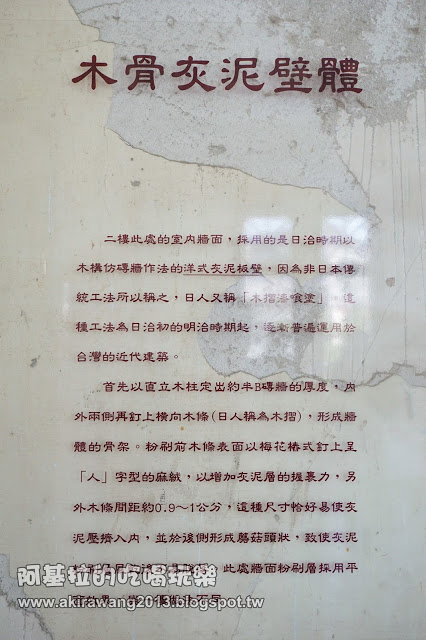 木骨灰泥壁體
二樓此處的室內牆面，採用的是日治時期以
木構仿磚牆作法的洋式灰泥板壁，因為非日本傳
統工法所以稱之，日人又稱「木摺漆喰塗」，這
種工法為日治初的明治時期起，逐漸普遍運用於
台灣的近代建築。
首先以直立木柱定出約半B磚牆的厚度，內
外兩側再釘上橫向木條(日人稱為木摺)，形成牆
體的骨架。粉刷前木條表面以梅花樁式釘上呈
「人」字型的麻絨，以增加灰泥層的握裹力，另
外木條間距約0.9~1公分，這種尺寸恰好易使灰
泥壓擠入內，並於後側形成蘑菇頭狀，致使灰泥
此處牆面粉刷層採用平
阿基拉的吃喝玩樂
www.akirawang2013.blogspot.tw